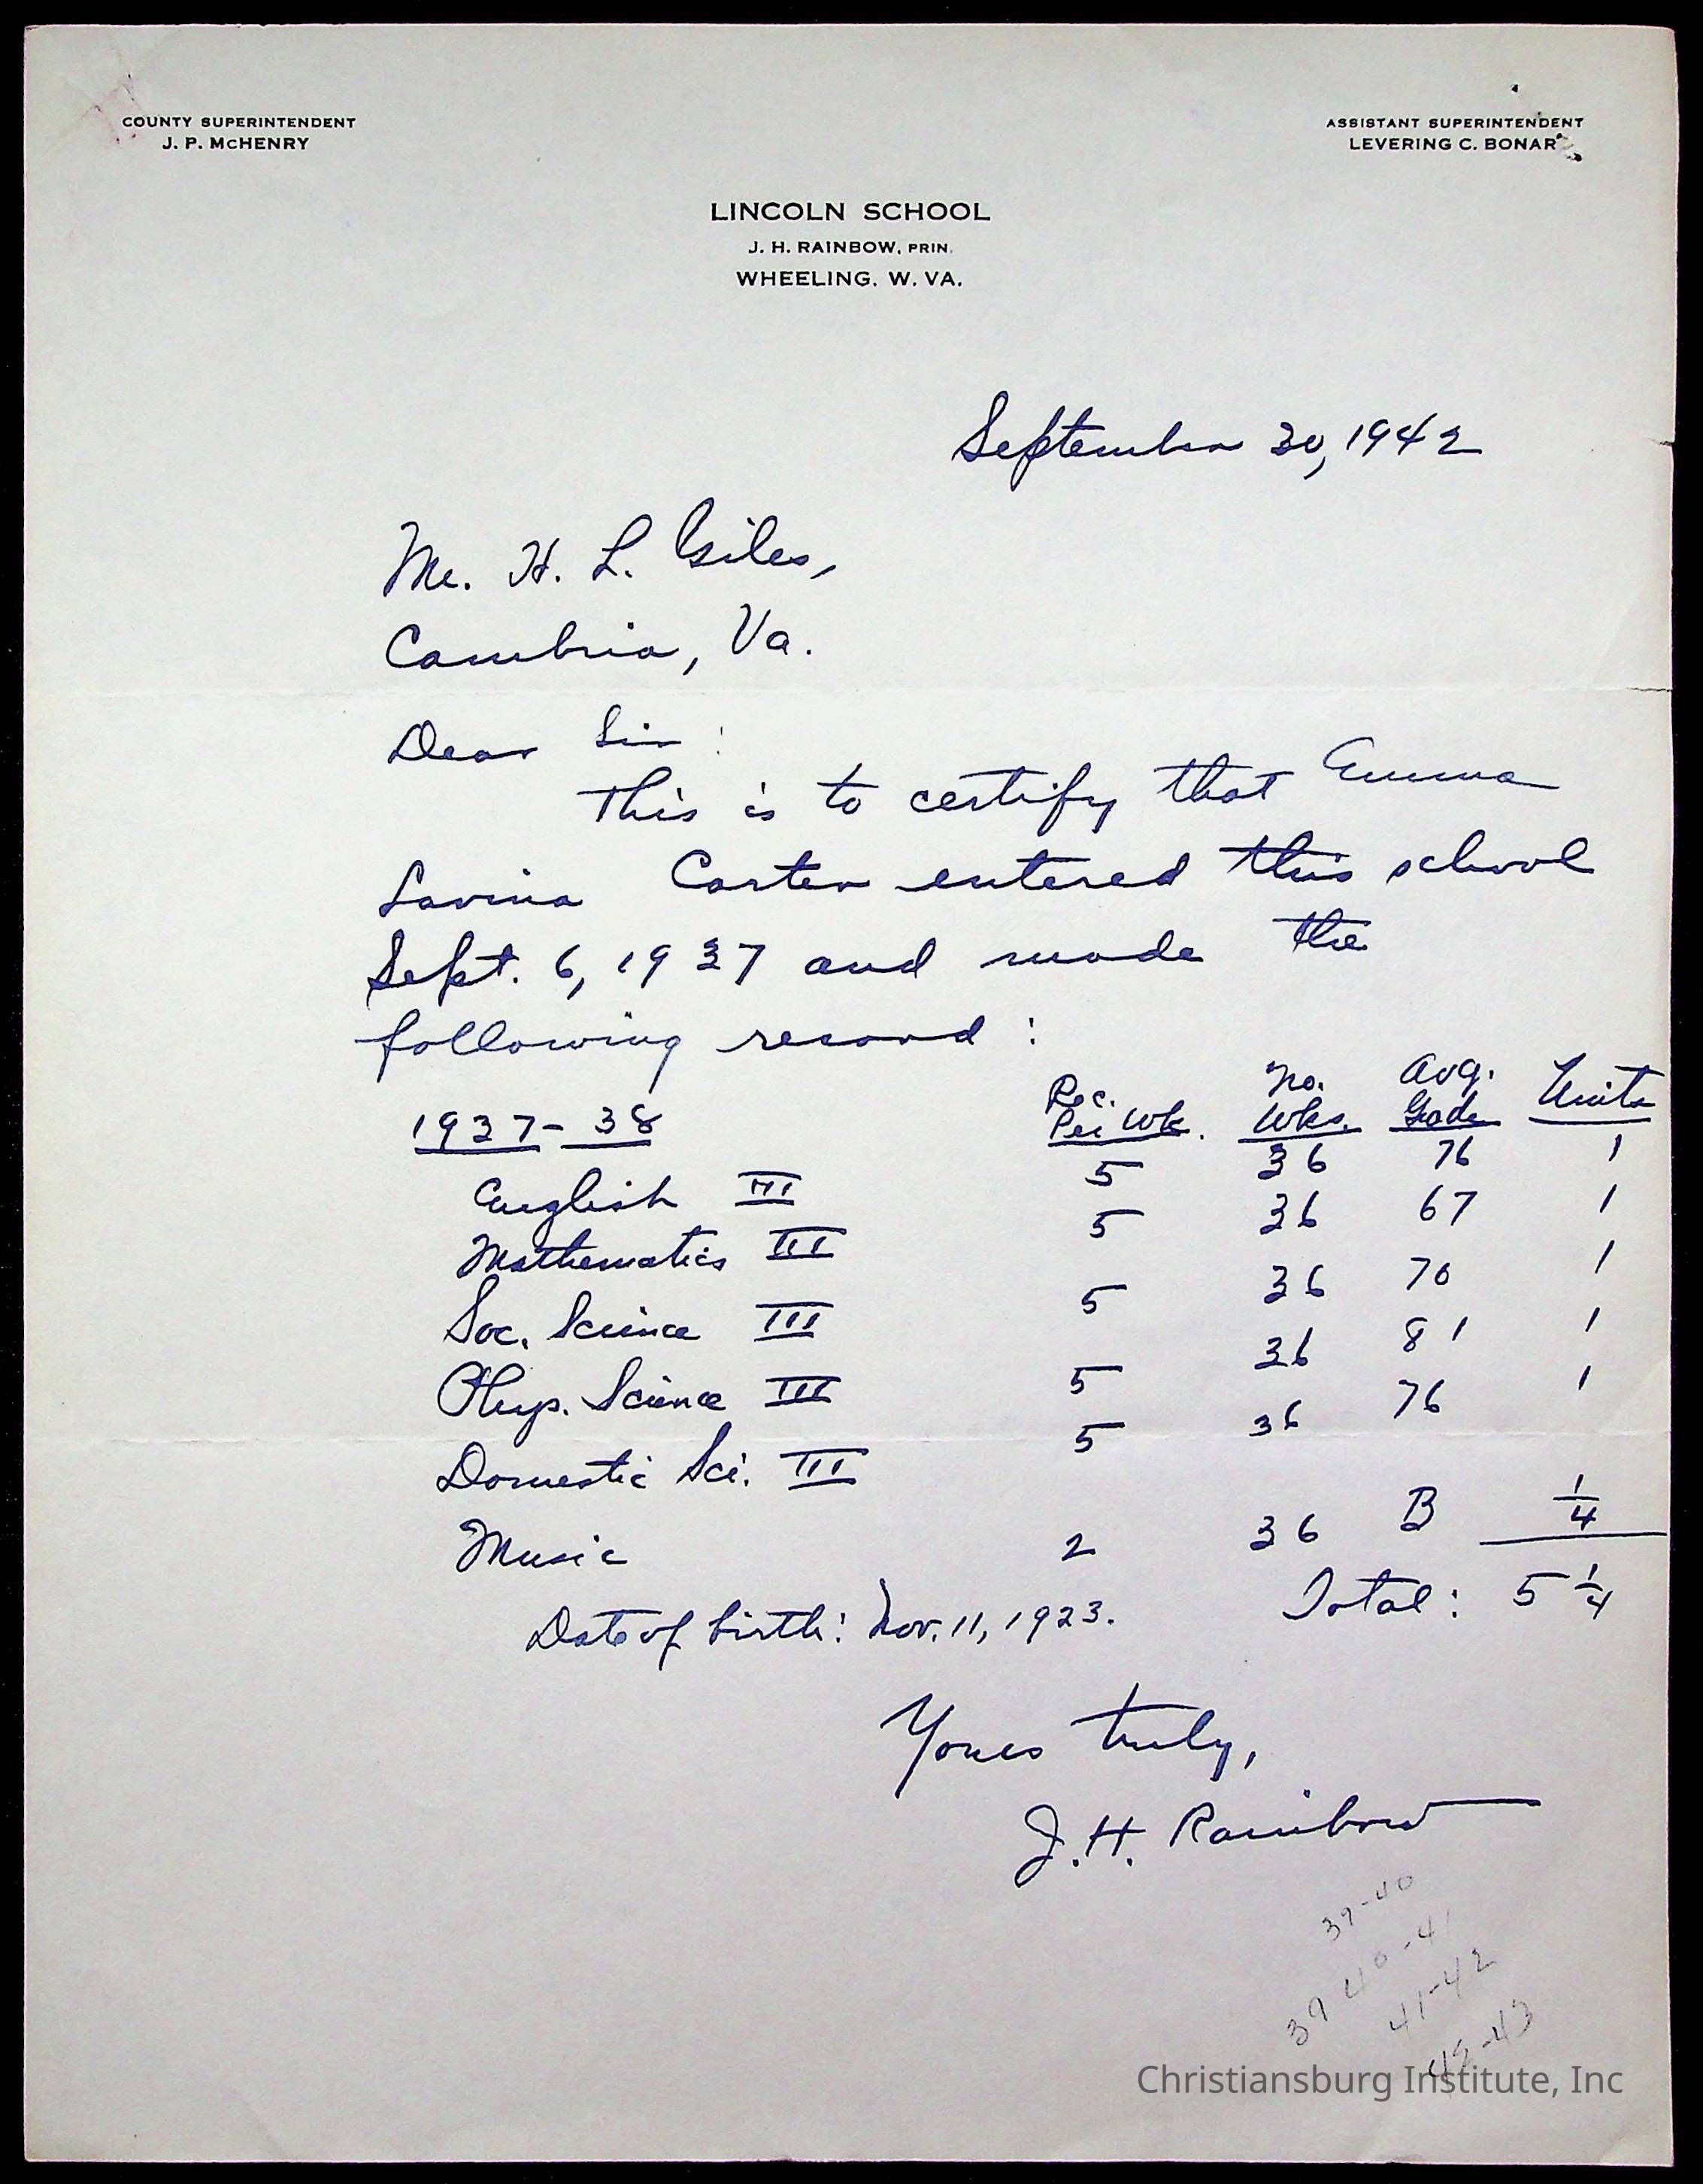 COUNTY SUPERINTENDENT
J. P. McHENRY
ASSISTANT SUPERINTENDENT
LEVERING C. BONAR
LINCOLN SCHOOL
J. H. RAINBOW, PRIN.
WHEELING, W. VA.
September 30, 1942
Mr. H. L. Giles,
Cambria, Va.
Dear Sir:
This is to certify that Emma
Lavina Carter entered this school
Sept. 6, 1937 and made the
following record:
1937-38 Rec. Per Wk. No. Wks. Avg. Grade Units
English III 5 36 76 1
Mathematics III 5 36 67 1
Soc. Science III 5 36 70 1
Phys. Science III 5 36 81 1
Domestic Sci. III 5 36 76 1
Music 2 36 B 1/4
Date of birth: Nov. 11, 1923. Total: 5 1/4
Yours truly,
J. H. Rainbow
39-40
39 40-41
41-42
42-43
Christiansburg Institute, Inc